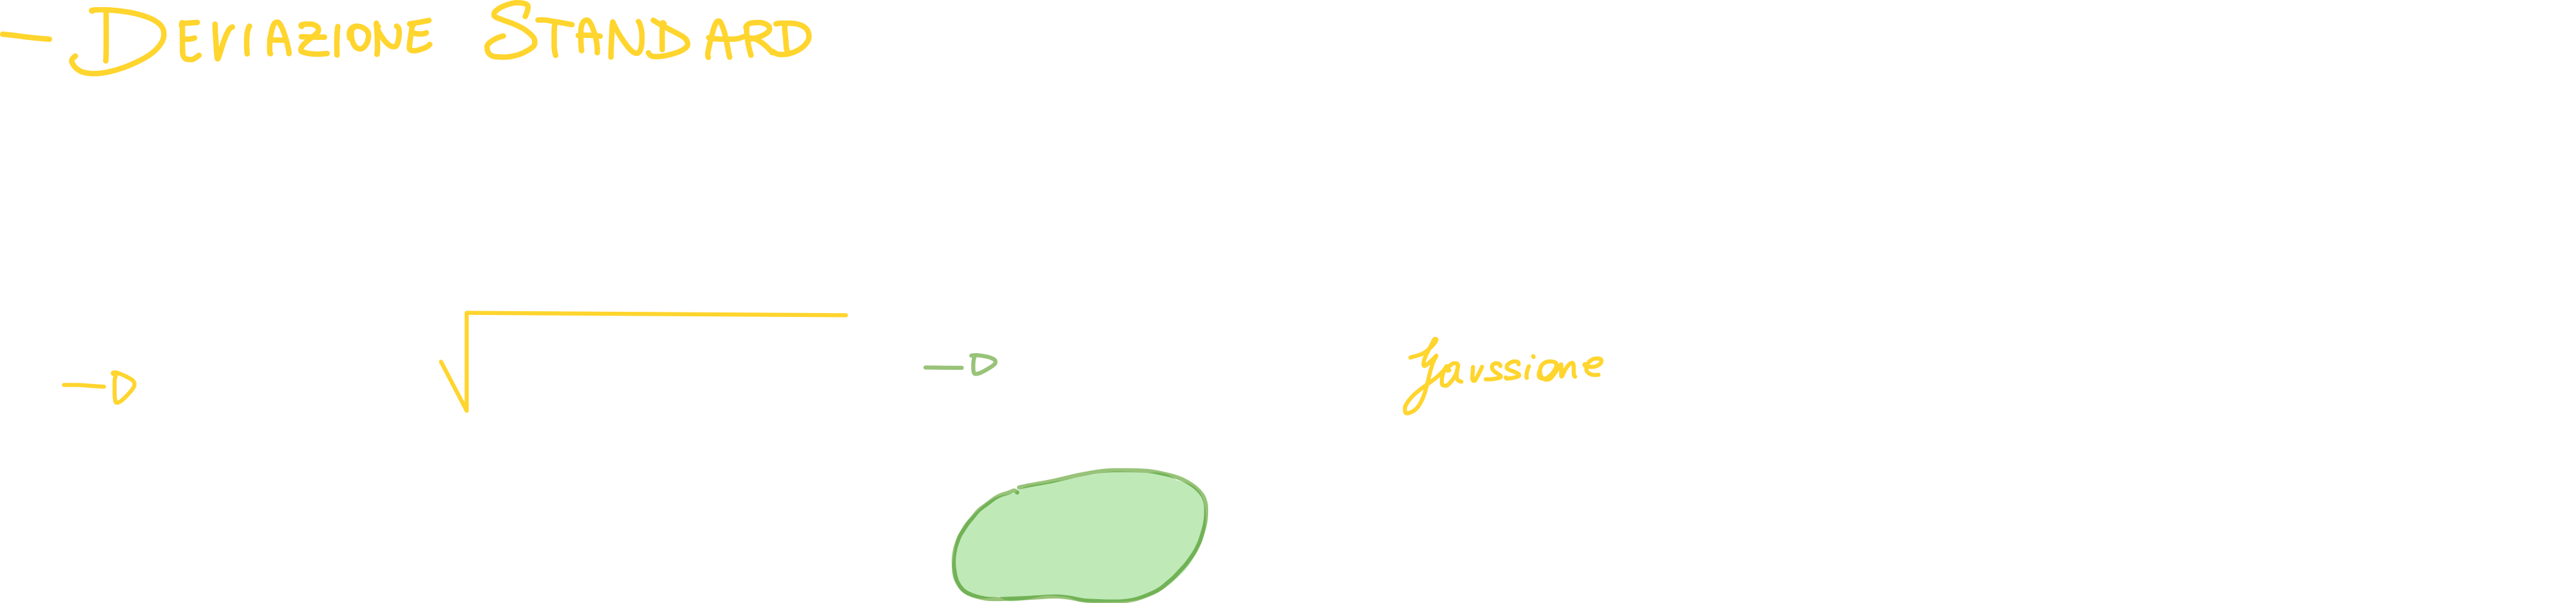 — DEVIAZIONE STANDARD
→ √ → Gaussione